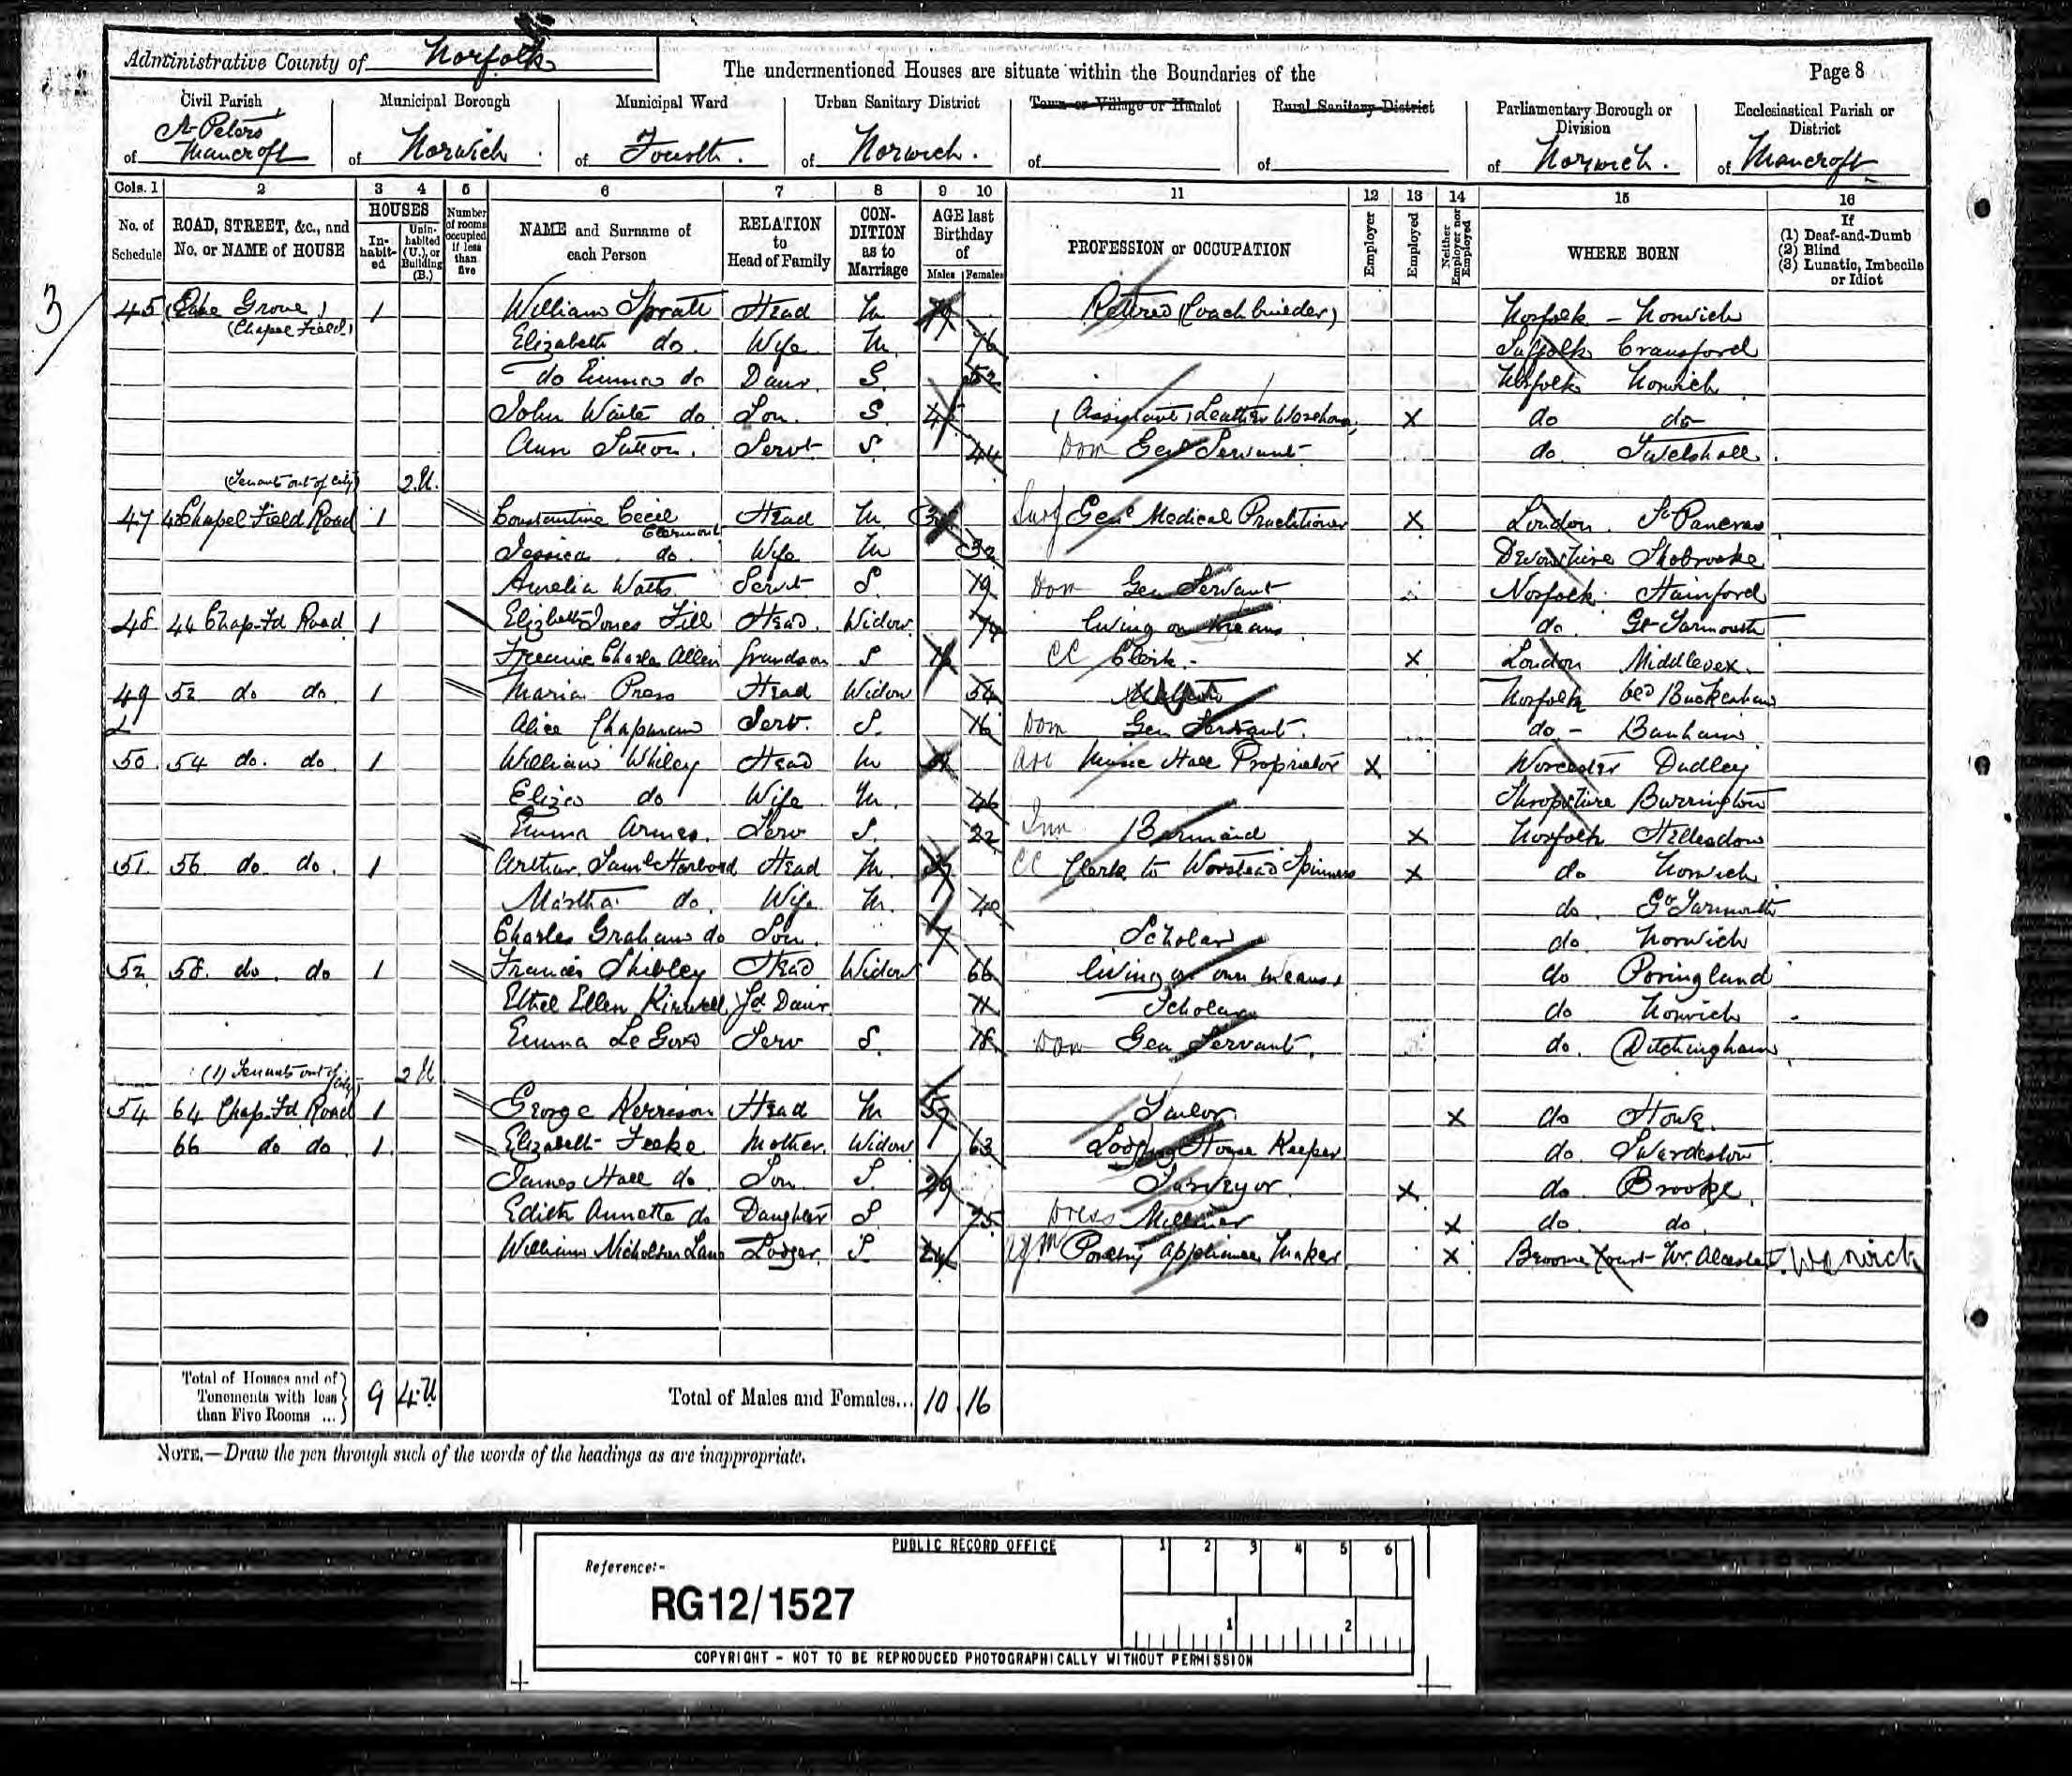 Administrative County of Norfolk
The undermentioned Houses are situate within the Boundaries of the
Page 8
Civil Parish of St Peters Mancroft
Municipal Borough of Norwich
Municipal Ward of Fourth.
Urban Sanitary District of Norwich.
Town or Village or Hamlet of
Rural Sanitary District of
Parliamentary Borough or Division of Norwich.
Ecclesiastical Parish or District of Mancroft
Cols. 1 2 3 4 5 6 7 8 9 10 11 12 13 14 15 16
No. of Schedule
ROAD, STREET, &c., and No. or NAME of HOUSE
HOUSES
Inhabited
Uninhabited (U.), or Building (B.)
Number of rooms occupied if less than five
NAME and Surname of each Person
RELATION to Head of Family
CONDITION as to Marriage
AGE last Birthday of
Males Females
PROFESSION or OCCUPATION
Employer
Employed
Neither Employer nor Employed
WHERE BORN
If
(1) Deaf-and-Dumb
(2) Blind
(3) Lunatic, Imbecile or Idiot
3
45 Grove 1 William Spratt Head M Retired (Coachbuilder) Norfolk - Norwich
(Chapel Field) Elizabeth do. Wife M. 76 Suffolk Cransford
do Emma do Daur. S. 52 Norfolk Norwich
John Waite do Son. S. (Assistant) Leather Wareho X do do
Ann Sutton. Servt S 44 Dom Gen Servant do. Tivetshall
(Tenants out of City) 2.U.
47 Chapel Field Road 1 Constantine Cecil Claremont Head M. Genl Medical Practitioner X London. St Pancras
Jessica do. Wife M 32 Devonshire Shobrooke
Aurelia Watts Servt S. 19 Dom Gen Servant Norfolk Hainford
48 44 Chap-Fd Road 1 Elizabeth Jones Head. Widow living on means do. Gt Yarmouth
Charles Allen Grandson S 16 CC Clerk.- X London Middlesex.
49 52 do do 1 Maria Press Head Widow 54 Norfolk Old Buckenham
Alice Chapman Serv. S. 16 Dom Gen Servant. do.- Banham
50. 54 do. do. 1 William Whiley Head M Music Hall Proprietor X Worcester Dudley
Eliza do Wife M. 46 Shropshire Burrington
Emma Armes. Serv S. 22 Inn Barmaid X Norfolk Hellesdon
51. 56 do. do. 1 Arthur Saml Harbord Head M. CC Clerk to Worstead Spinners X do Norwich
Martha do. Wife M. 40 do. Gt Yarmouth
Charles Graham do Son. 7 Scholar do. Norwich
52 58. do. do 1 Frances Shibley Head Widow 66 living on own means do Poringland
Ethel Ellen Gd Daur. 11 Scholar do Norwich
Emma Le Serv S. 18 Dom Gen Servant. do. Ditchingham
(1) Tenants out of City 2 U
54 64 Chap-Fd Road 1 George Kerrison Head M 52 Tailor X do Howe.
66 do do. 1. Elizabeth Feeke Mother. Widow 63 Lodging House Keeper do. Swardeston
James Hall do Son S. 29 Surveyor. X do Brooke
Edith Annette do Daughter S. 25 Dress Milliner X do. do.
William Nicholson Lane Lodger. S 24 Poultry Appliances Maker X Broome Court Nr. Alcester. Warwick
Total of Houses and of Tenements with less than Five Rooms ... 9 4.U
Total of Males and Females... 10 16
NOTE.—Draw the pen through such of the words of the headings as are inappropriate.
PUBLIC RECORD OFFICE
1 2 3 4 5 6
Reference:-
RG12/1527
1 2
COPYRIGHT - NOT TO BE REPRODUCED PHOTOGRAPHICALLY WITHOUT PERMISSION